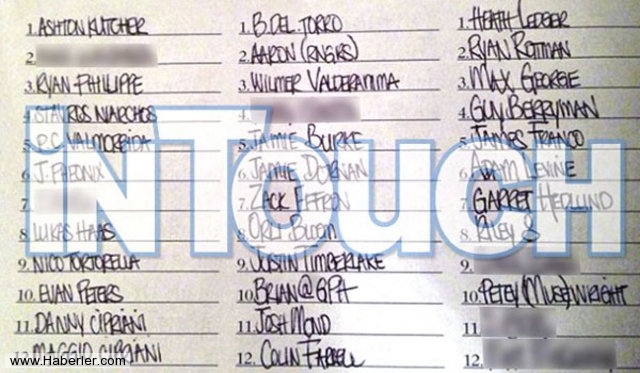 1. ASHTON KUTCHER
2.
3. RYAN PHILIPPE
4. STAVROS NIARCHOS
5. P.C. VALMORBIDA
6. J. PHONIX
7.
8. LUKAS HAAS
9. NICO TORTORELLA
10. EVAN PETERS
11. DANNY CIPRIANI
12. MAGGIO CIPRIANI
1. B. DEL TORRO
2. AARON (RNGRS)
3. WILMER VALDERAMA
4.
5. JAMIE BURKE
6. JAMIE DORNAN
7. ZACK EFRON
8. ORLI BLOOM
9. JUSTIN TIMBERLAKE
10. BRIAN@GPH
11. JOSH MOND
12. COLIN FARRELL
1. HEATH LEDGER
2. RYAN ROTTMAN
3. MAX GEORGE
4. GUY BERRYMAN
5. JAMES FRANCO
6. ADAM LEVINE
7. GARRET HEDLUND
8. RILEY S
9.
10. PETEY (MUSE) WRIGHT
11.
12.
INTOUCH
www.Haberler.com